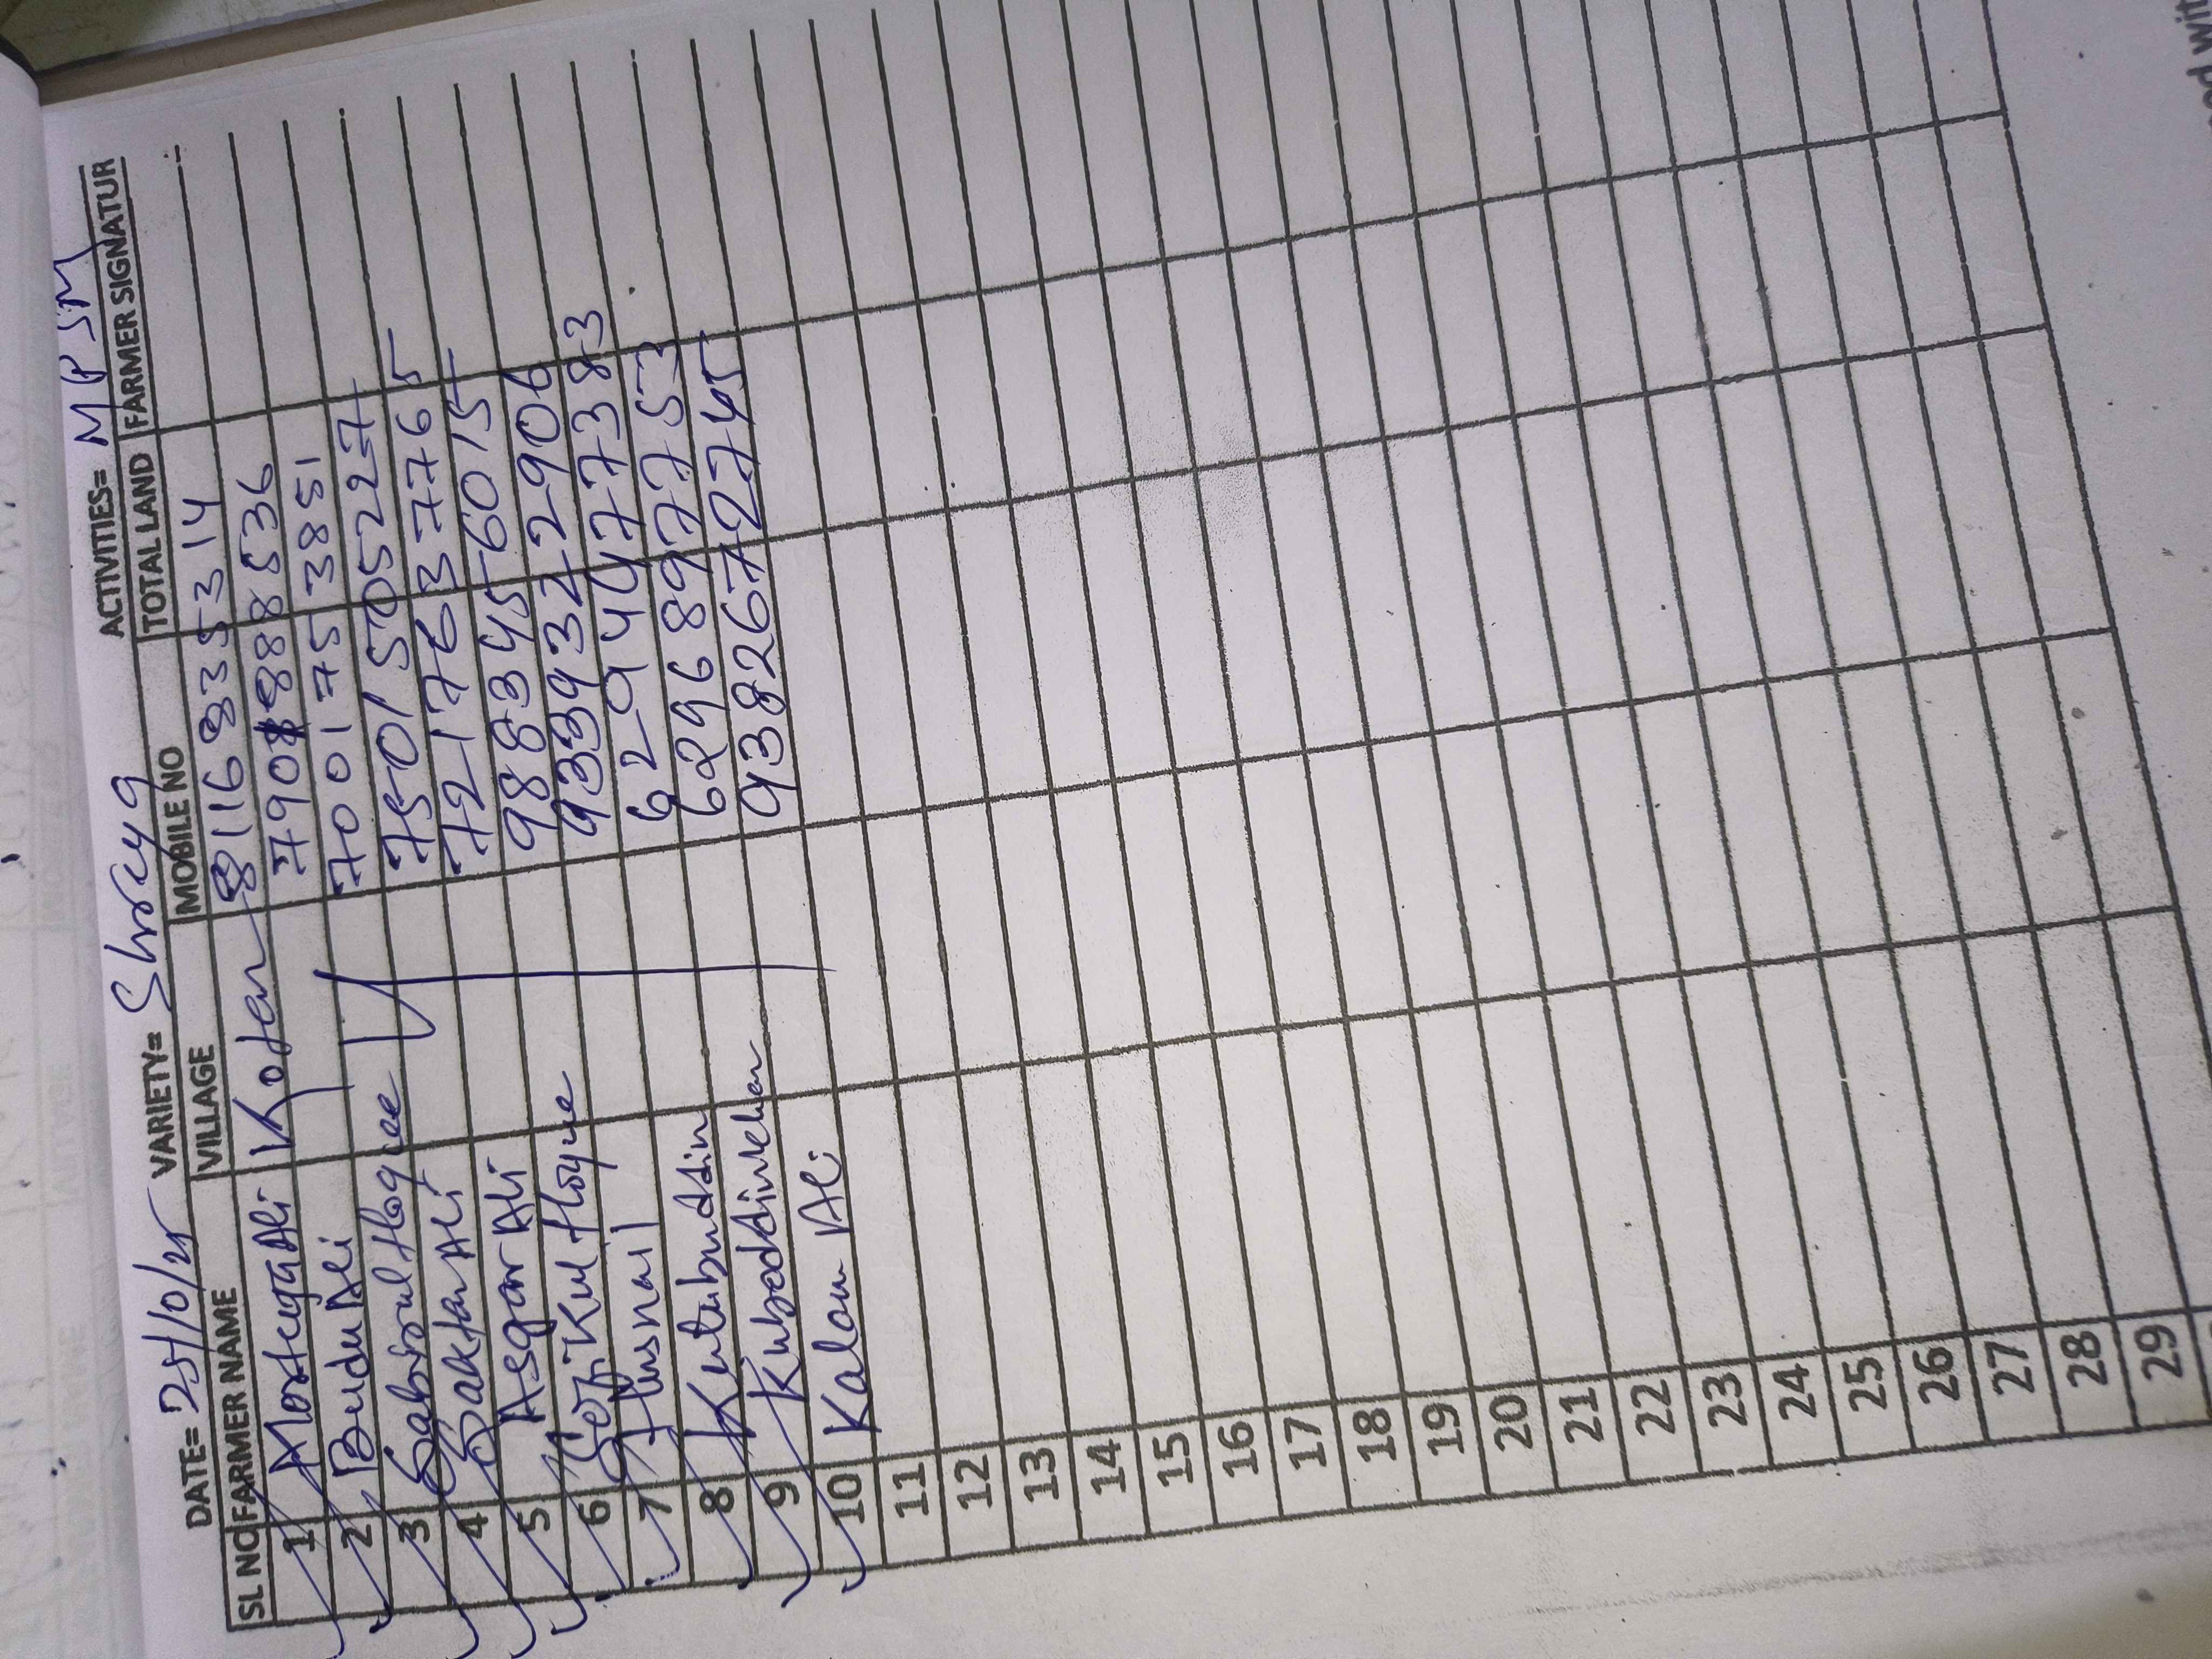 DATE= 25/10/25 VARIETY= Shreya ACTIVITIES= M P SM
SL NO FARMER NAME VILLAGE MOBILE NO TOTAL LAND FARMER SIGNATUR
1 Ali Koten 8116935314
2 Budu Ali 7908888536
3 Sabirul Hogue 7001753851
4 Saktar Ali 7501505227
5 Asgar Ali 7217637765
6 Kul Hoque 9883456015
7 Husnal 9339322906
8 Kutubuddin 6294477383
9 6296897753
10 Kalam Ali 9382672745
11
12
13
14
15
16
17
18
19
20
21
22
23
24
25
26
27
28
29